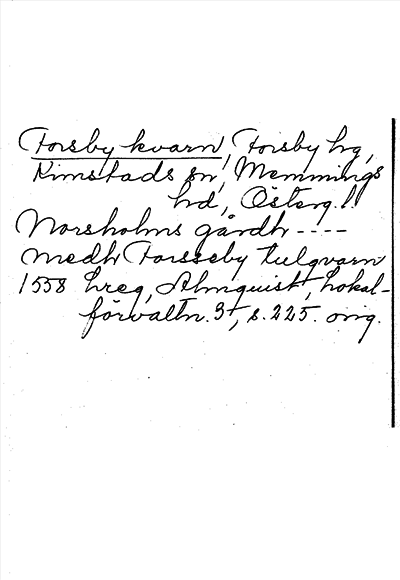 Forsby kvarn, Forsby hg,
Kimstads sn, Memmings
hd, Österg.l.
Norsholms gårdh ----
medh Forsseby tulqvarn
1558 hreg, Almquist, Lokal-
förvaltn. 3, s. 225. orig.